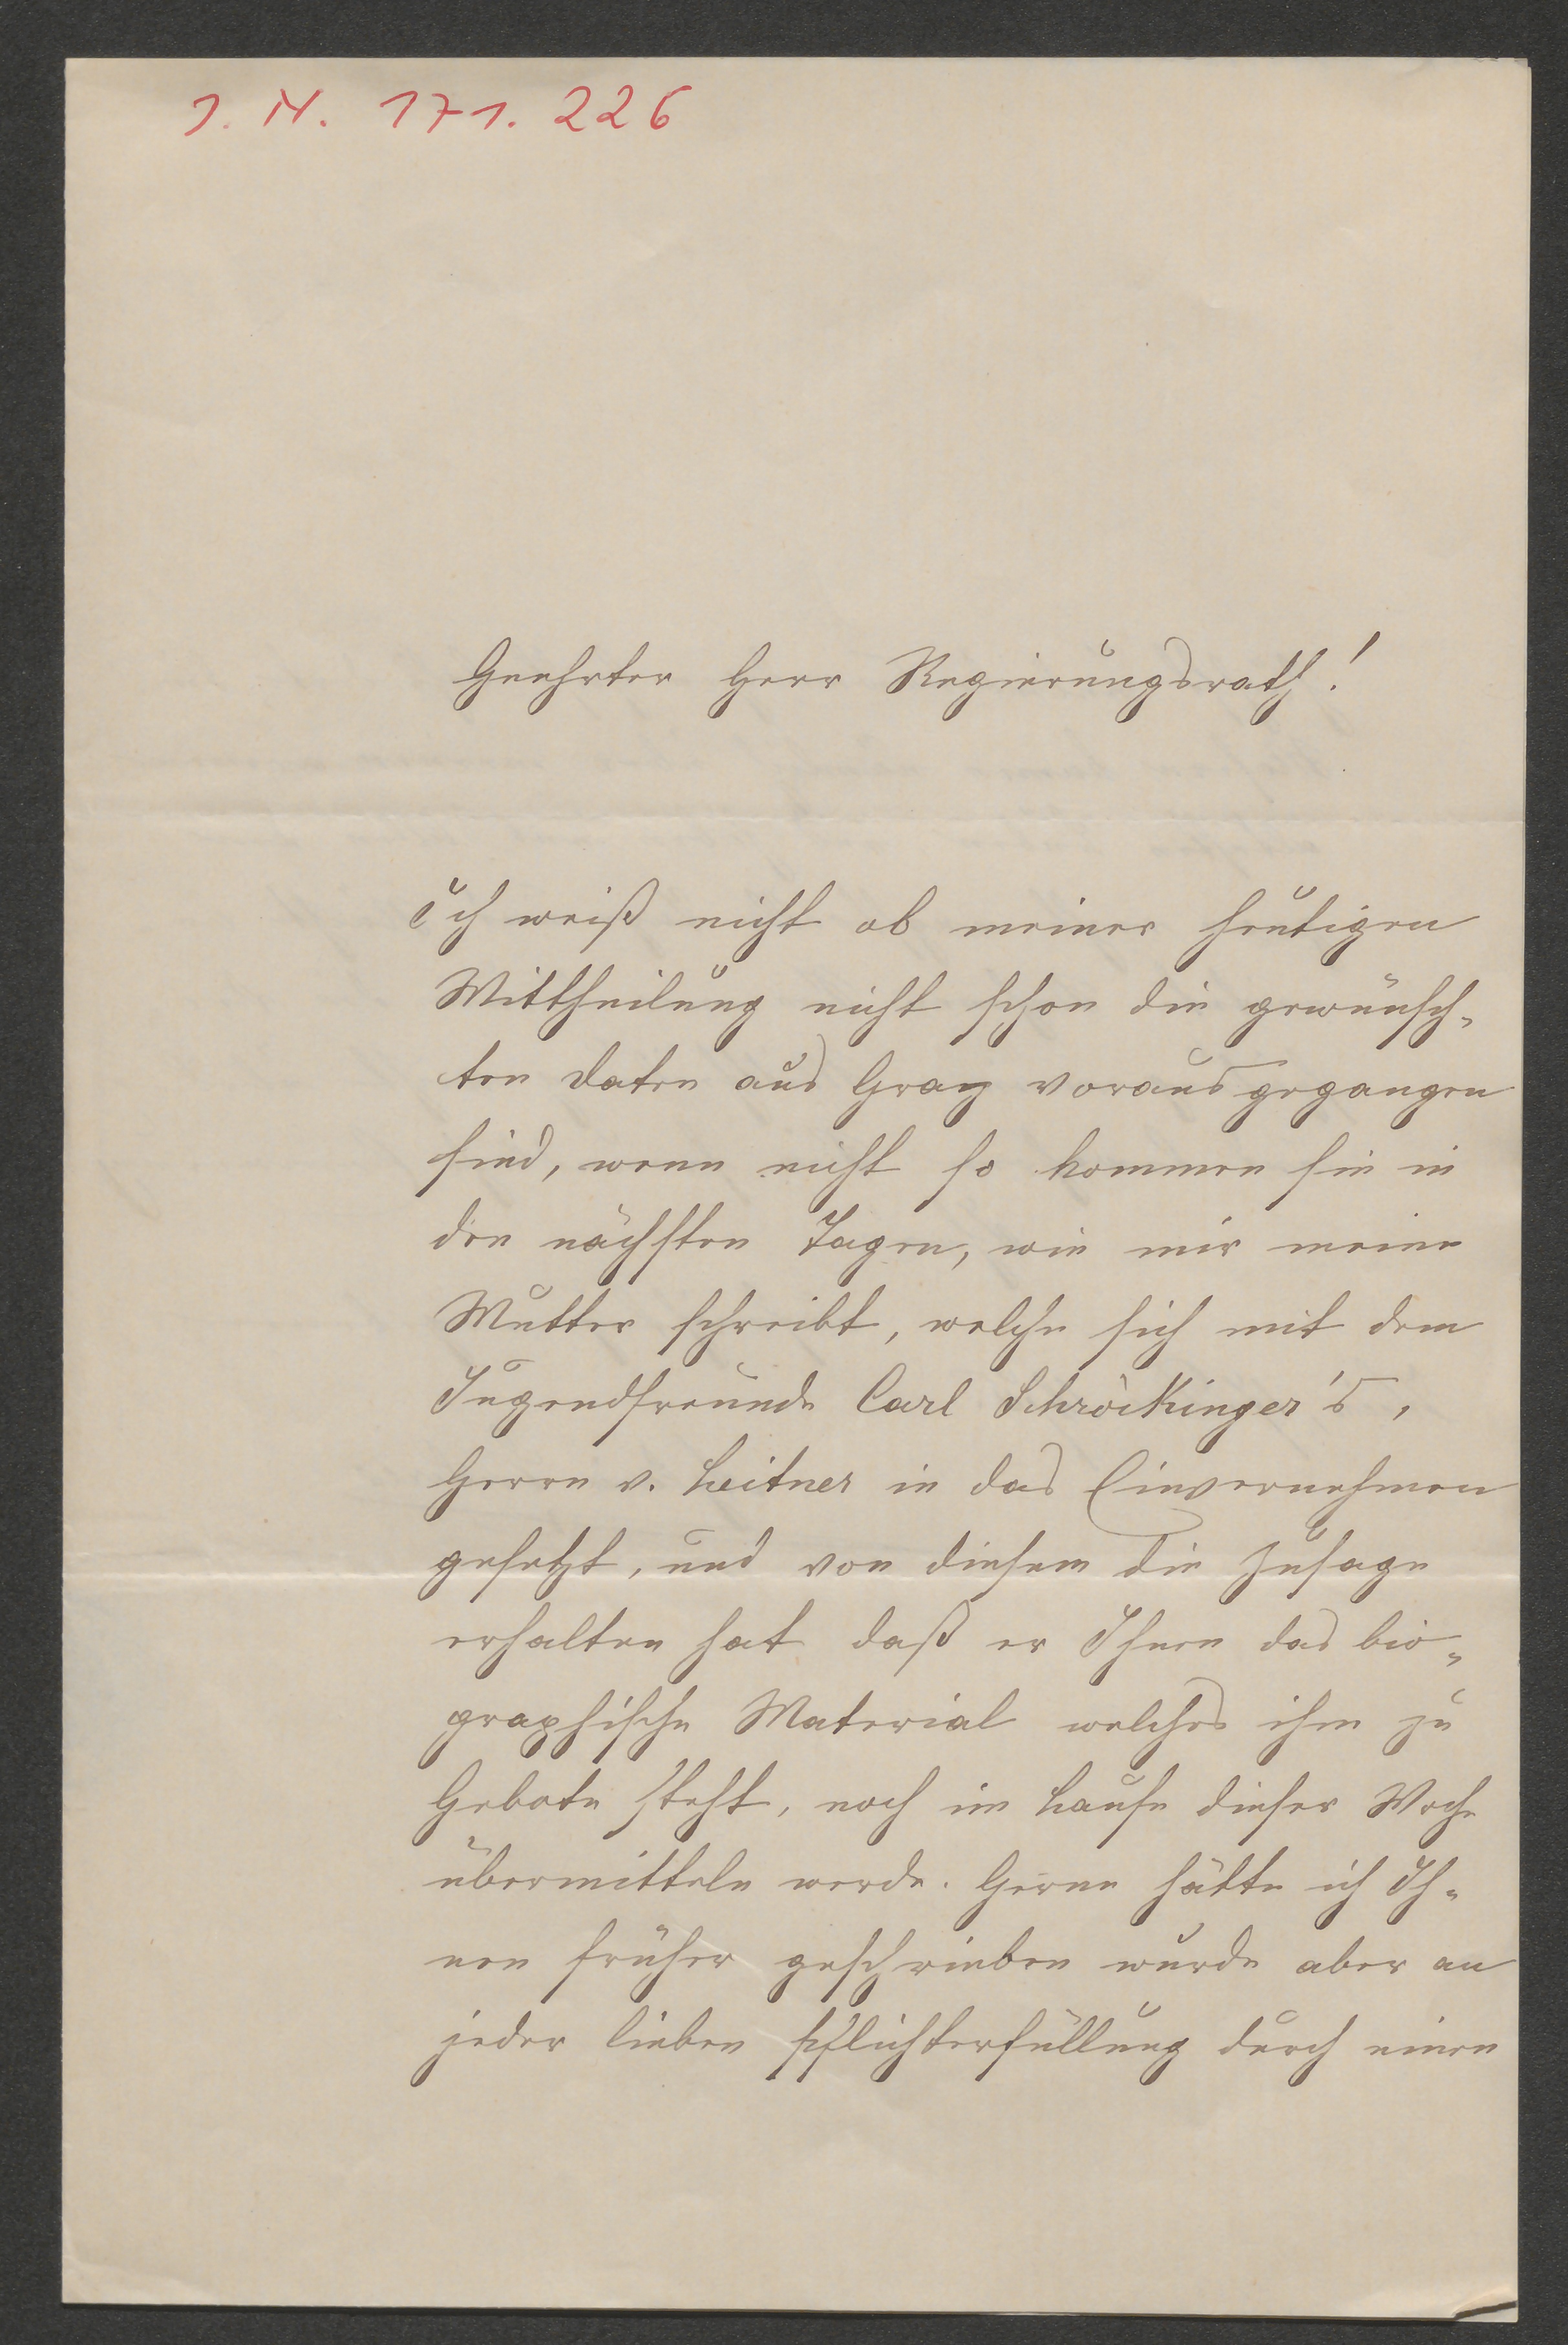 J. N. 171.226
Geehrter Herr Regierungsrath!
Ich weiß nicht ob meiner heutigen
Mittheilung nicht schon die gewünsch-
ten Daten aus Graz vorausgegangen
sind, wenn nicht so kommen sie in
den nächsten Tagen, wie mir meine
Mutter schreibt, welche sich mit dem
Jugendfreunde Carl Schröckinger's,
Herrn v. Leitner in das Einvernehmen
gesetzt, und von diesem die Zusage
erhalten hat daß er Ihnen das bio-
graphische Material welches ihm zu
Gebote steht, noch im Laufe dieser Woche
übermitteln werde. Gerne hätte ich Ih-
nen früher geschrieben wurde aber an
jeder lieben Pflichterfüllung durch einen